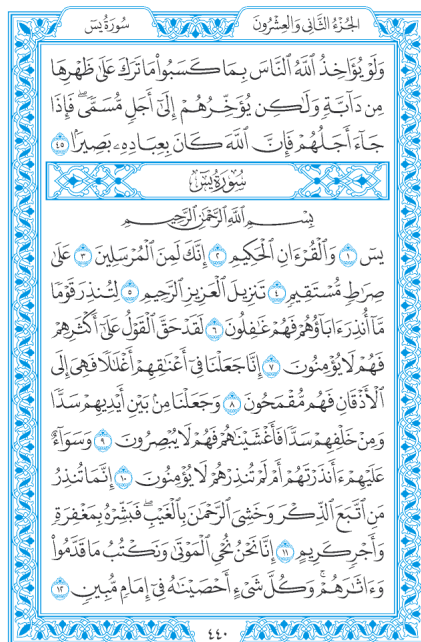 سُورَةُ يسٓ
الجُزْءُ الثَّانِي وَالعِشْرُونَ
وَلَوْ يُؤَاخِذُ ٱللَّهُ ٱلنَّاسَ بِمَا كَسَبُواْ مَا تَرَكَ عَلَىٰ ظَهْرِهَا
مِن دَآبَّةٖ وَلَٰكِن يُؤَخِّرُهُمْ إِلَىٰٓ أَجَلٖ مُّسَمّٗىۖ فَإِذَا
جَآءَ أَجَلُهُمْ فَإِنَّ ٱللَّهَ كَانَ بِعِبَادِهِۦ بَصِيرَۢا ٤٥
سُورَةُ يسٓ
بِسْمِ ٱللَّهِ ٱلرَّحْمَٰنِ ٱلرَّحِيمِ
يسٓ ١ وَٱلْقُرْءَانِ ٱلْحَكِيمِ ٢ إِنَّكَ لَمِنَ ٱلْمُرْسَلِينَ ٣ عَلَىٰ
صِرَٰطٖ مُّسْتَقِيمٖ ٤ تَنزِيلَ ٱلْعَزِيزِ ٱلرَّحِيمِ ٥ لِتُنذِرَ قَوْمٗا
مَّآ أُنذِرَ ءَابَآؤُهُمْ فَهُمْ غَٰفِلُونَ ٦ لَقَدْ حَقَّ ٱلْقَوْلُ عَلَىٰٓ أَكْثَرِهِمْ
فَهُمْ لَا يُؤْمِنُونَ ٧ إِنَّا جَعَلْنَا فِيٓ أَعْنَٰقِهِمْ أَغْلَٰلٗا فَهِيَ إِلَى
ٱلْأَذْقَانِ فَهُم مُّقْمَحُونَ ٨ وَجَعَلْنَا مِنۢ بَيْنِ أَيْدِيهِمْ سَدّٗا
وَمِنْ خَلْفِهِمْ سَدّٗا فَأَغْشَيْنَٰهُمْ فَهُمْ لَا يُبْصِرُونَ ٩ وَسَوَآءٌ
عَلَيْهِمْ ءَأَنذَرْتَهُمْ أَمْ لَمْ تُنذِرْهُمْ لَا يُؤْمِنُونَ ١٠ إِنَّمَا تُنذِرُ
مَنِ ٱتَّبَعَ ٱلذِّكْرَ وَخَشِيَ ٱلرَّحْمَٰنَ بِٱلْغَيْبِۖ فَبَشِّرْهُ بِمَغْفِرَةٖ
وَأَجْرٖ كَرِيمٍ ١١ إِنَّا نَحْنُ نُحْيِ ٱلْمَوْتَىٰ وَنَكْتُبُ مَا قَدَّمُواْ
وَءَاثَٰرَهُمْۚ وَكُلَّ شَيْءٍ أَحْصَيْنَٰهُ فِيٓ إِمَامٖ مُّبِينٖ ١٢
٤٤٠